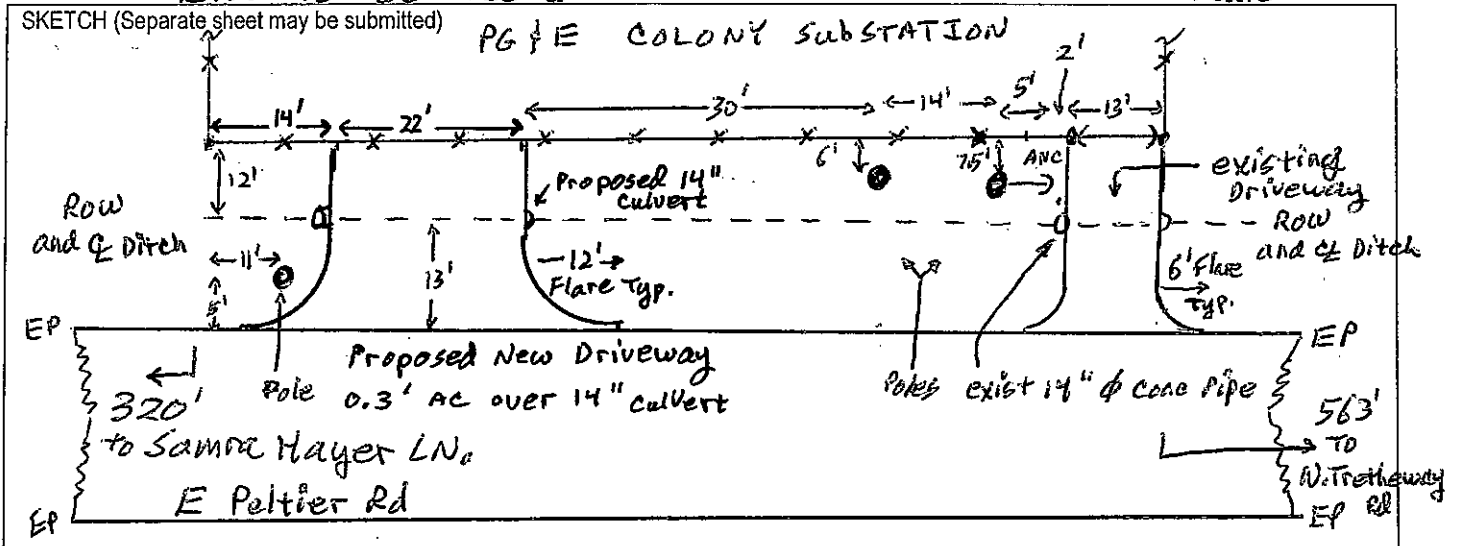 SKETCH (Separate sheet may be submitted)
PG & E COLONY SubSTATION
2'
5'
14' 22' 30' 14' 13'
12' 6' 7.5' ANC
existing
Driveway
Proposed 14"
culvert
Row
and ℄ Ditch
Row
and ℄ Ditch
11' 13' 12'
Flare Typ.
6' Flare
Typ.
5'
EP EP
Pole
Proposed New Driveway
0.3' AC over 14" culvert
Poles
exist 14" ϕ conc Pipe
320'
to Samra Hayer LN.
563'
TO
N. Tretheway
Rd
E Peltier Rd
EP EP